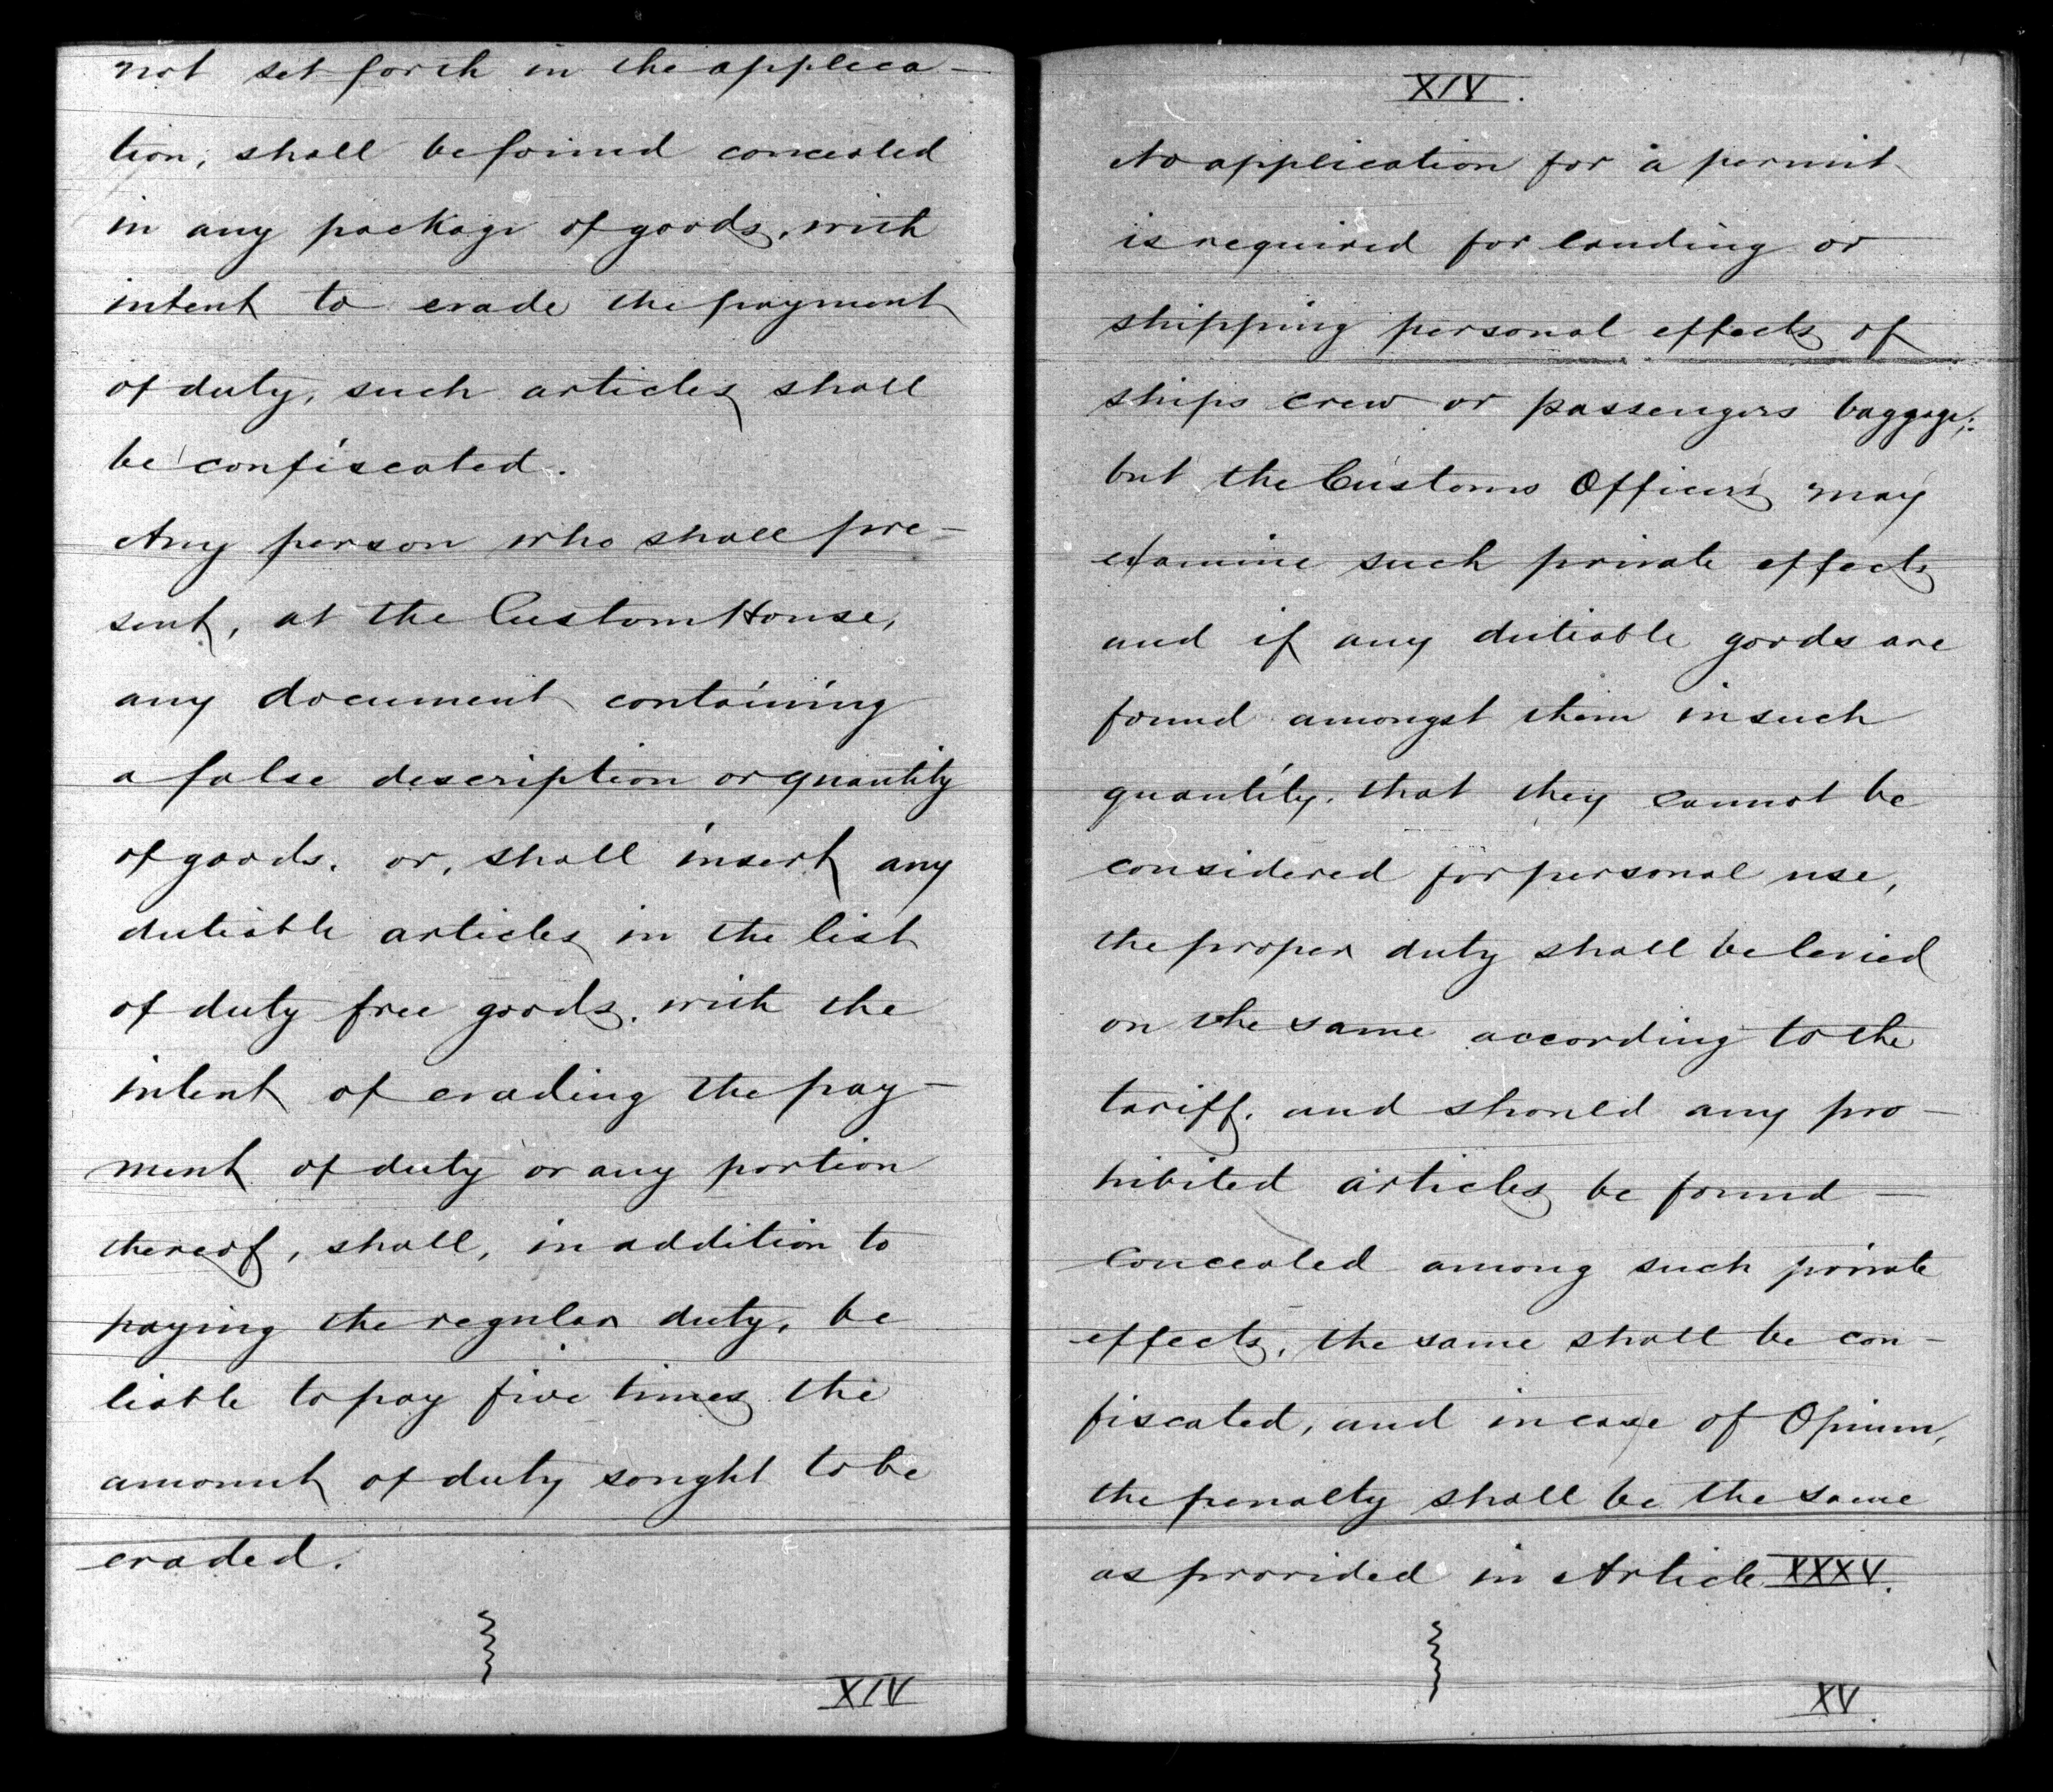 not set forth in the applica-
tion, shall be found concealed
in any package of goods, with
intent to evade the payment
of duty, such articles shall
be confiscated.
Any person who shall pre-
sent, at the Custom House,
any document containing
a false description or quantity
of goods, or, shall insert any
dutiable articles in the list
of duty free goods, with the
intent of evading the pay-
ment of duty or any portion
thereof, shall, in addition to
paying the regular duty, be
liable to pay five times the
amount of duty sought to be
evaded.
XIV
XIV.
No application for a permit
is required for landing or
shipping personal effects of
ships crew or passengers baggage;
but the Customs Officers may
examine such private effects
and if any dutiable goods are
found amongst them in such
quantity, that they cannot be
considered for personal use,
the proper duty shall be levied
on the same according to the
tariff, and should any pro-
hibited articles be found
concealed among such private
effects, the same shall be con-
fiscated, and in case of Opium,
the penalty shall be the same
as provided in Article XXXV.
XV.